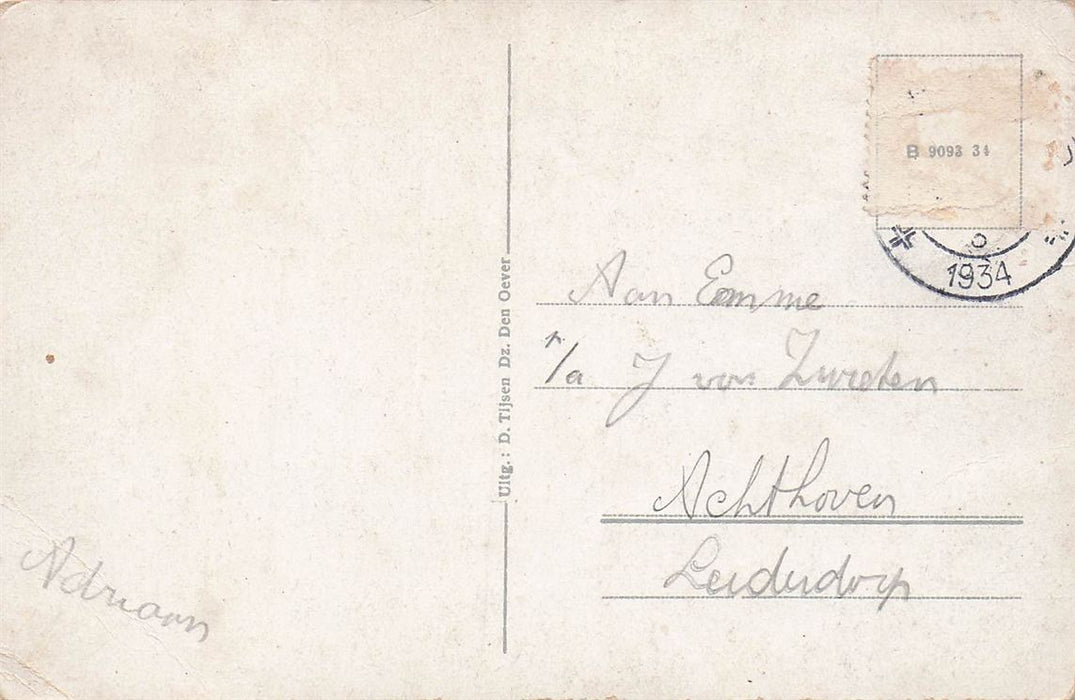 Adriaan
Uitg.: D. Tijsen Dz. Den Oever
B 9093 34
1934
Aan Emme
p/a J van Zwieten
Achthoven
Leiderdorp